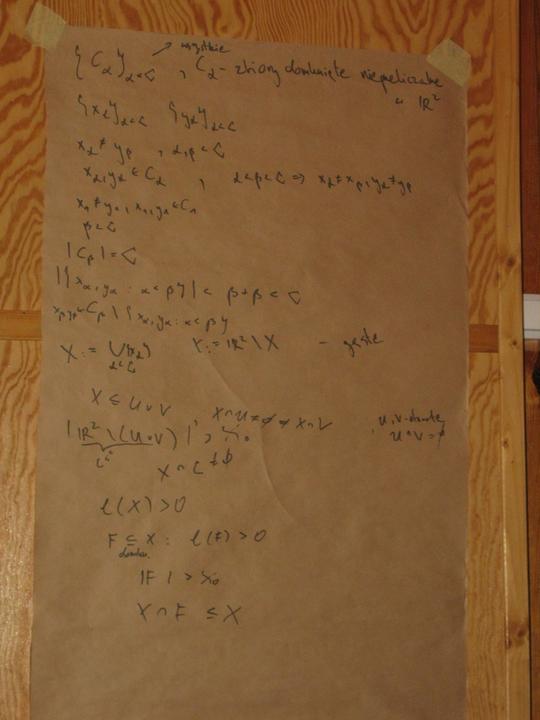 wszystkie
{C_α}_{α<𝔠} , C_α - zbiory domknięte nieprzeliczalne
w ℝ²
{x_α}_{α<𝔠} {y_α}_{α<𝔠}
x_α ≠ y_β , α,β < 𝔠
x_α, y_α ∈ C_α , α<β<𝔠 ⇒ x_α ≠ x_β, y_α ≠ y_β
x_1 ≠ y_1, x_1, y_1 ∈ C_1
β < 𝔠
|C_β| = 𝔠
|{x_α, y_α : α < β}| < β + β < 𝔠
x_β, y_β ∈ C_β \ {x_α, y_α : α < β}
X := ⋃_{α<𝔠} {x_α} Y := ℝ² \ X - gęste
X ⊆ U ∪ V X ∩ U ≠ ∅ ≠ X ∩ V , U, V - otwarte
|ℝ² \ (U ∪ V)| > ℵ₀ U ∩ V = ∅
X ∩ C ≠ ∅
ℓ(X) > 0
F ⊆ X : ℓ(F) > 0
domkn.
|F| > ℵ₀
X ∩ F ⊆ X